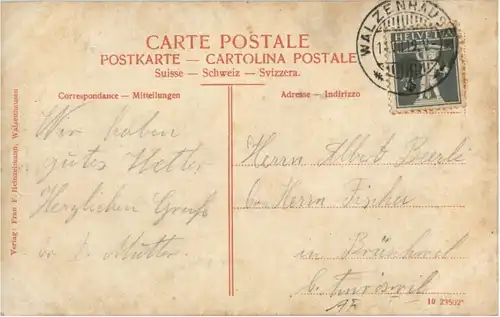 CARTE POSTALE
POSTKARTE — CARTOLINA POSTALE
Suisse — Schweiz — Svizzera.
WALZENHAUSEN
HELVETIA
Correspondance — Mitteilungen
Adresse — Indirizzo
Wir haben
gutes Wetter
Herzlichen Gruß
Mutter.
Herrn Albert Beerli
Herrn Fischer
in
b.
10 23502
Verlag: Frau F. Heinzelmann, Walzenhausen